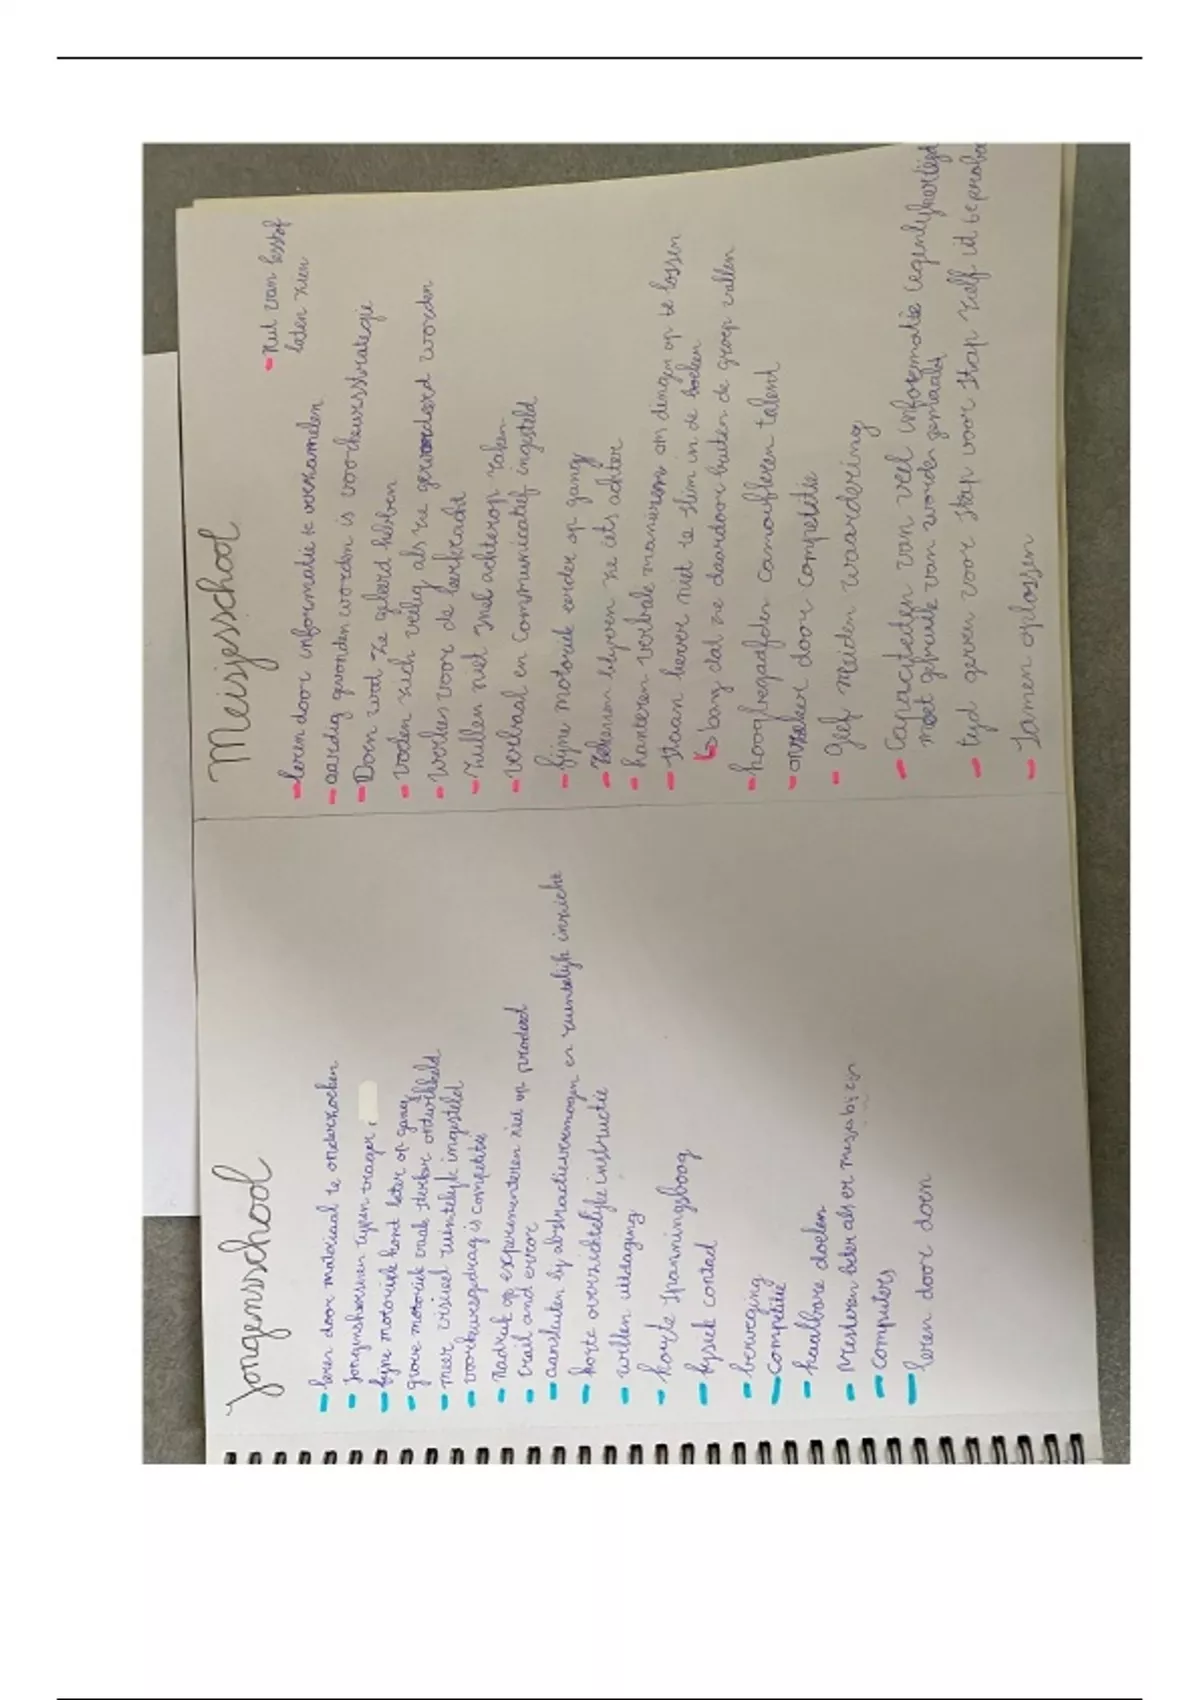 Jongensschool
leren door materiaal te onderzoeken
Jongenshersenen rypen trager
fijne motoriek komt later op gang
grove motoriek vaak sterker ontwikkeld
meer visueel ruimtelijk ingesteld
voorkeursgedrag is competitie
Nadruk op experimenteren niet op product
trail and error
aansluiten bij abstractievermogen en ruimtelijk inzicht
korte overzichtelijke instructie
willen uitdaging
korte spanningsboog
fysiek contact
beweging
competitie
haalbare doelen
Presteren beter als er meisjes bij zijn
computers
leren door doen
Meisjesschool
Nut van lesstof
laten zien
leren door informatie te verzamelen
aardig gevonden worden is voorkeursstrategie
Doen wat ze geleerd hebben
voelen zich veilig als ze gewaardeerd worden
werken voor de leerkracht
zullen niet snel achterop raken
verbaal en communicatief ingesteld
fijne motoriek eerder op gang
ze iets achter
hanteren verbale manieren om dingen op te lossen
staan liever niet te slim in de boeken
bang dat ze daardoor buiten de groep vallen
hoogbegaafden camoufleren talent
onzeker door competitie
geef meiden waardering
Capaciteiten van veel informatie tegenlijkertijd
moet gebruik van worden gemaakt
tyd geven voor stap voor stap zelf uit
samen oplossen